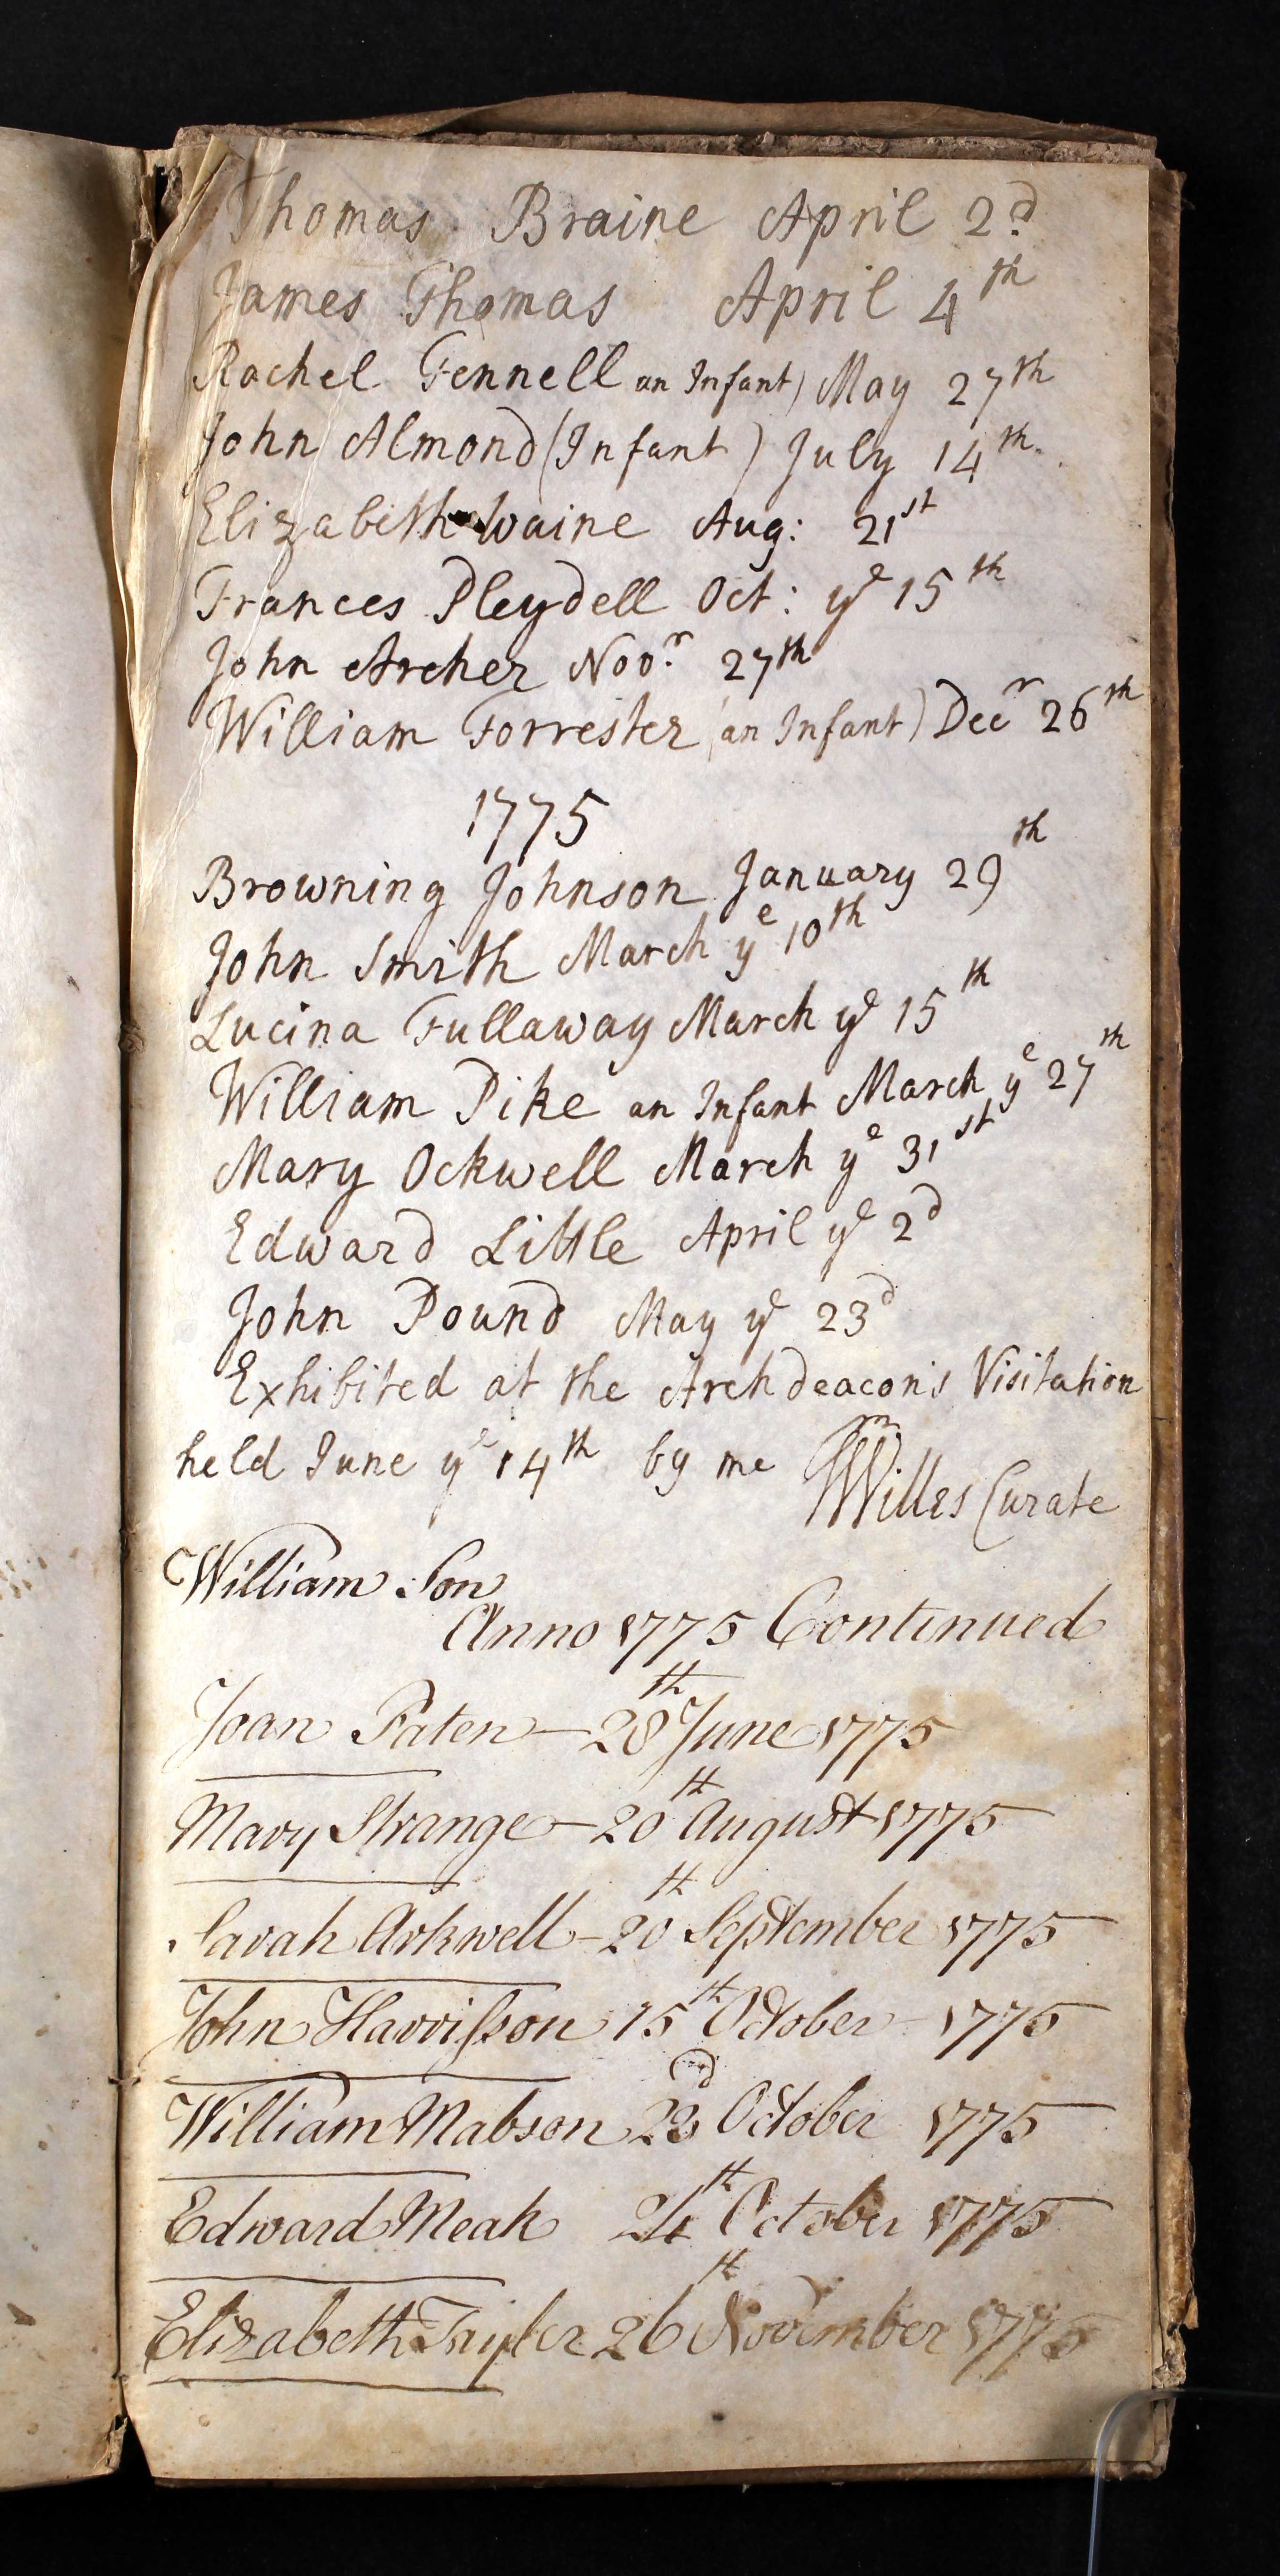 Thomas Braine April 2d
James Thomas April 4th
Rachel Fennell an Infant) May 27th
John Almond (Infant) July 14th.
Elizabeth Waine Aug: 21st
Frances Pleydell Oct: ye 15th
John Archer Novr. 27th
William Forrester (an Infant) Decr 26th
1775
Browning Johnson January 29th
John Smith March ye 10th
Lucina Fullaway March ye 15th
William Pike an Infant March ye 27th
Mary Ockwell March ye 31st
Edward Little April ye 2d
John Pound May ye 23d
Exhibited at the Archdeacon's Visitation
held June ye 14th by me Wm Willes Curate
William Son
Anno 1775 Continued
Joan Paten — 28th June 1775
Mary Strange — 20th August 1775
Sarah Arkwell — 20th September 1775
John Harrisson 15th October 1775
William Mabson 23d October 1775
Edward Meak 24th October 1775
Elizabeth 26th November 1775